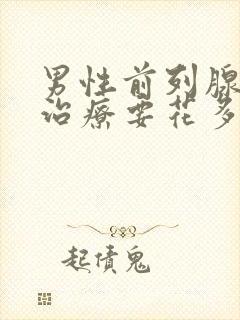 男性前列腺
治療要花多
起債鬼